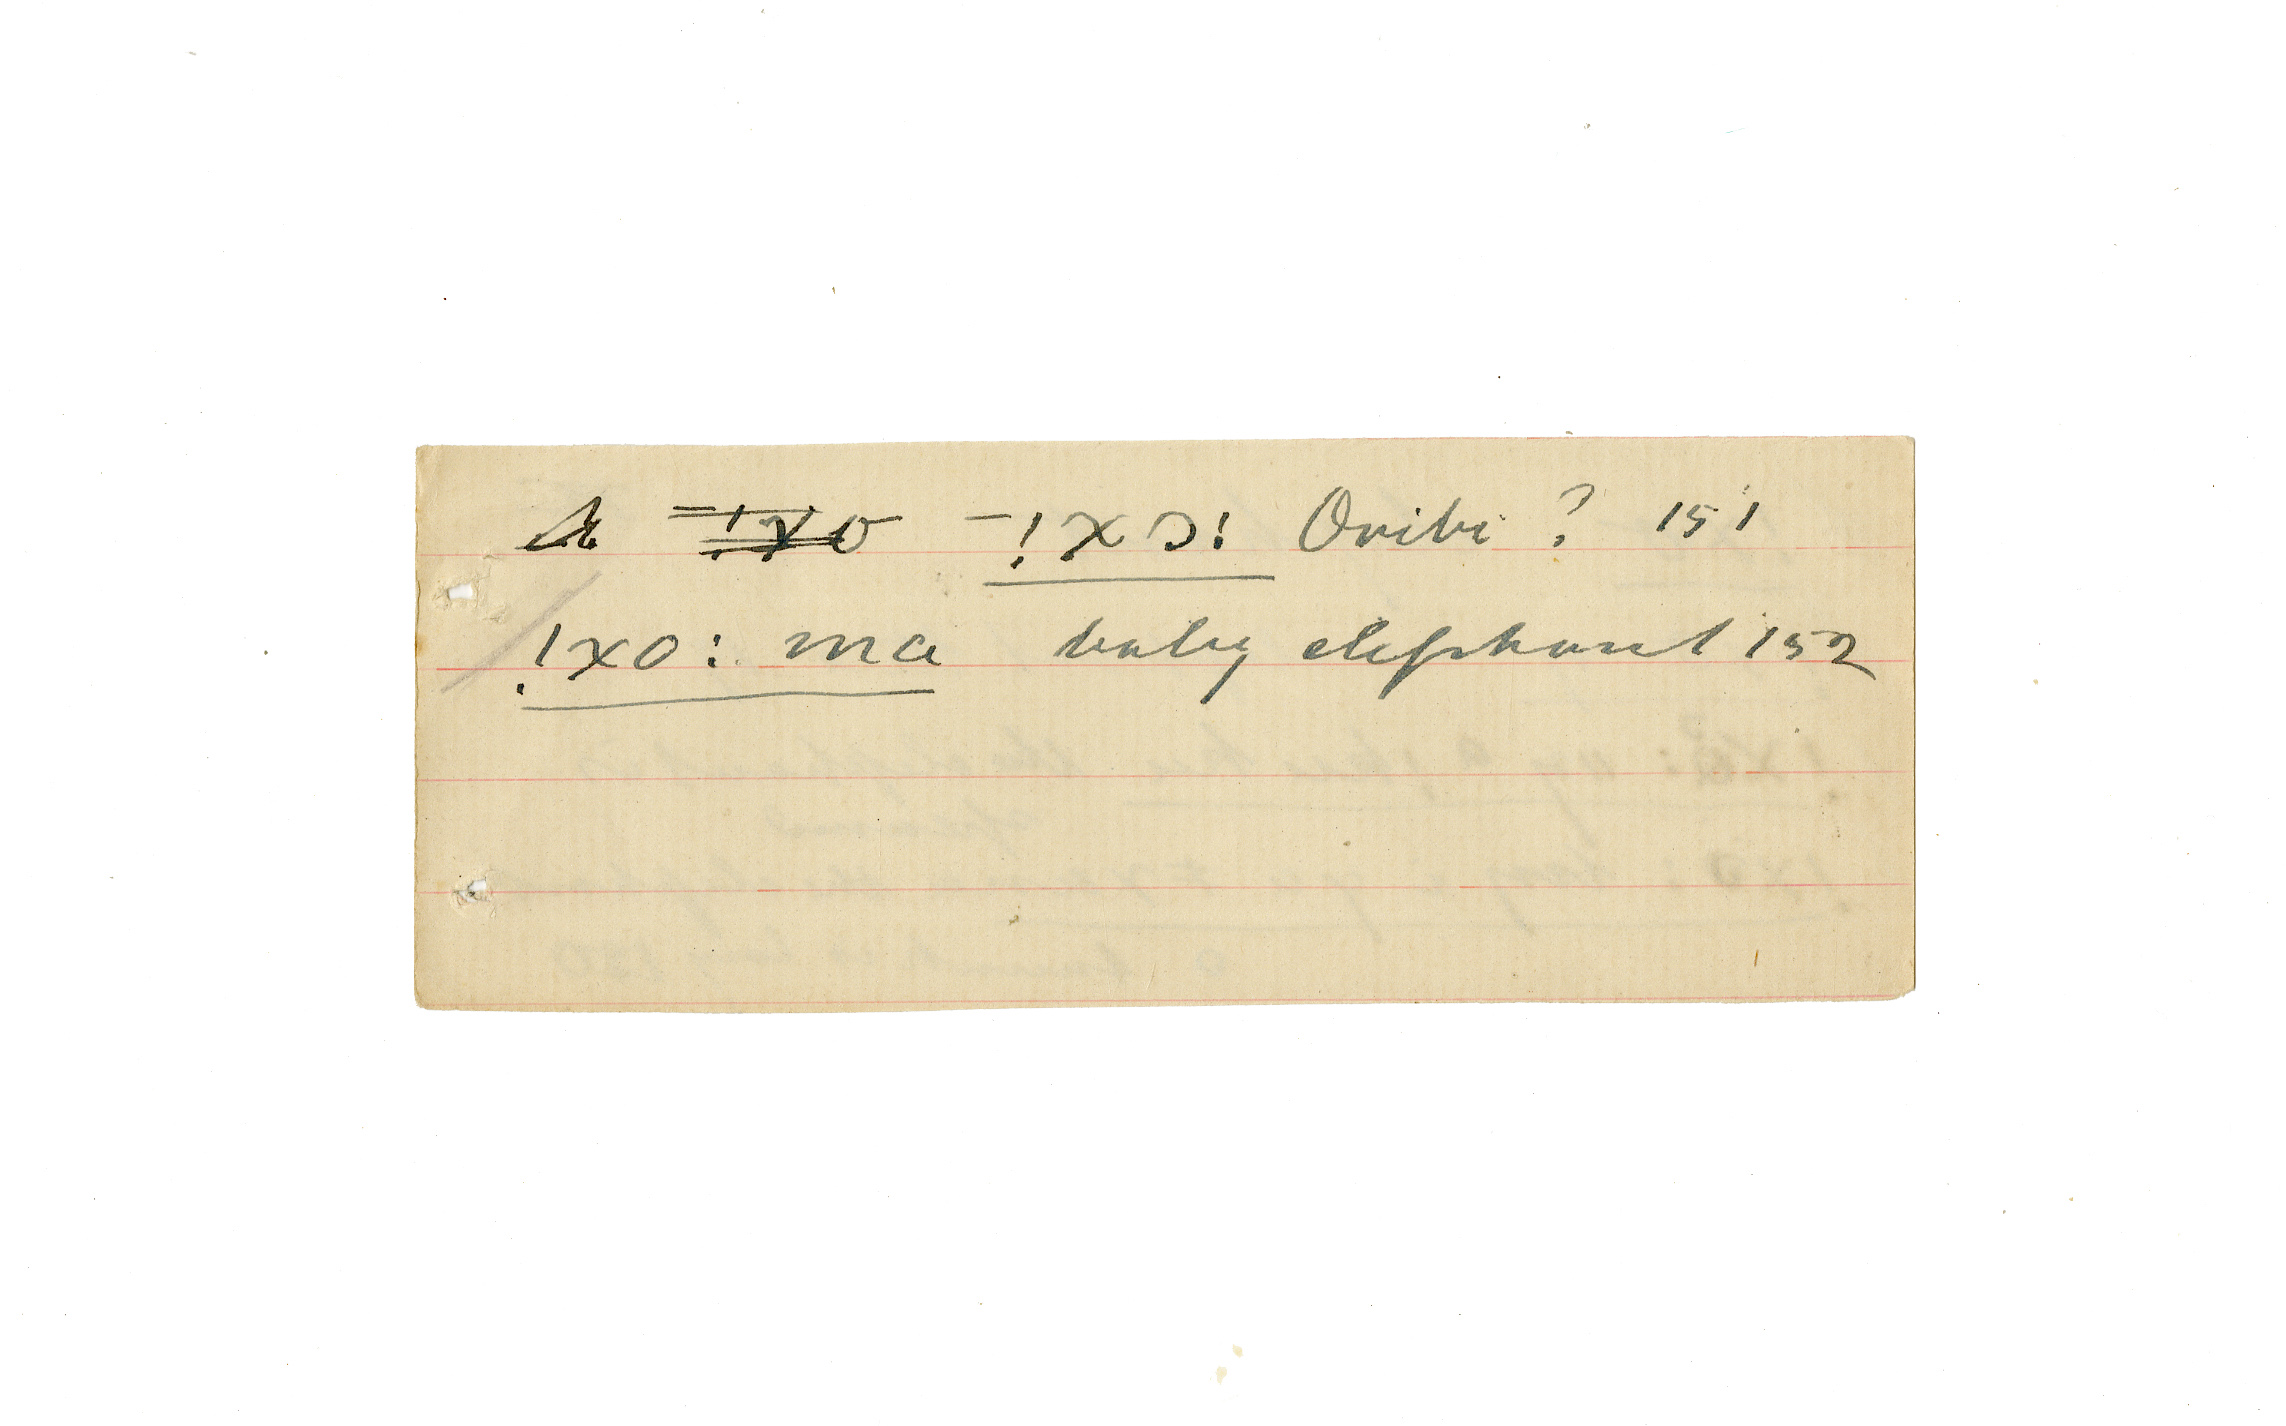 –!xɔ: Oribi ? 151
!xo: ma baby elephant 152